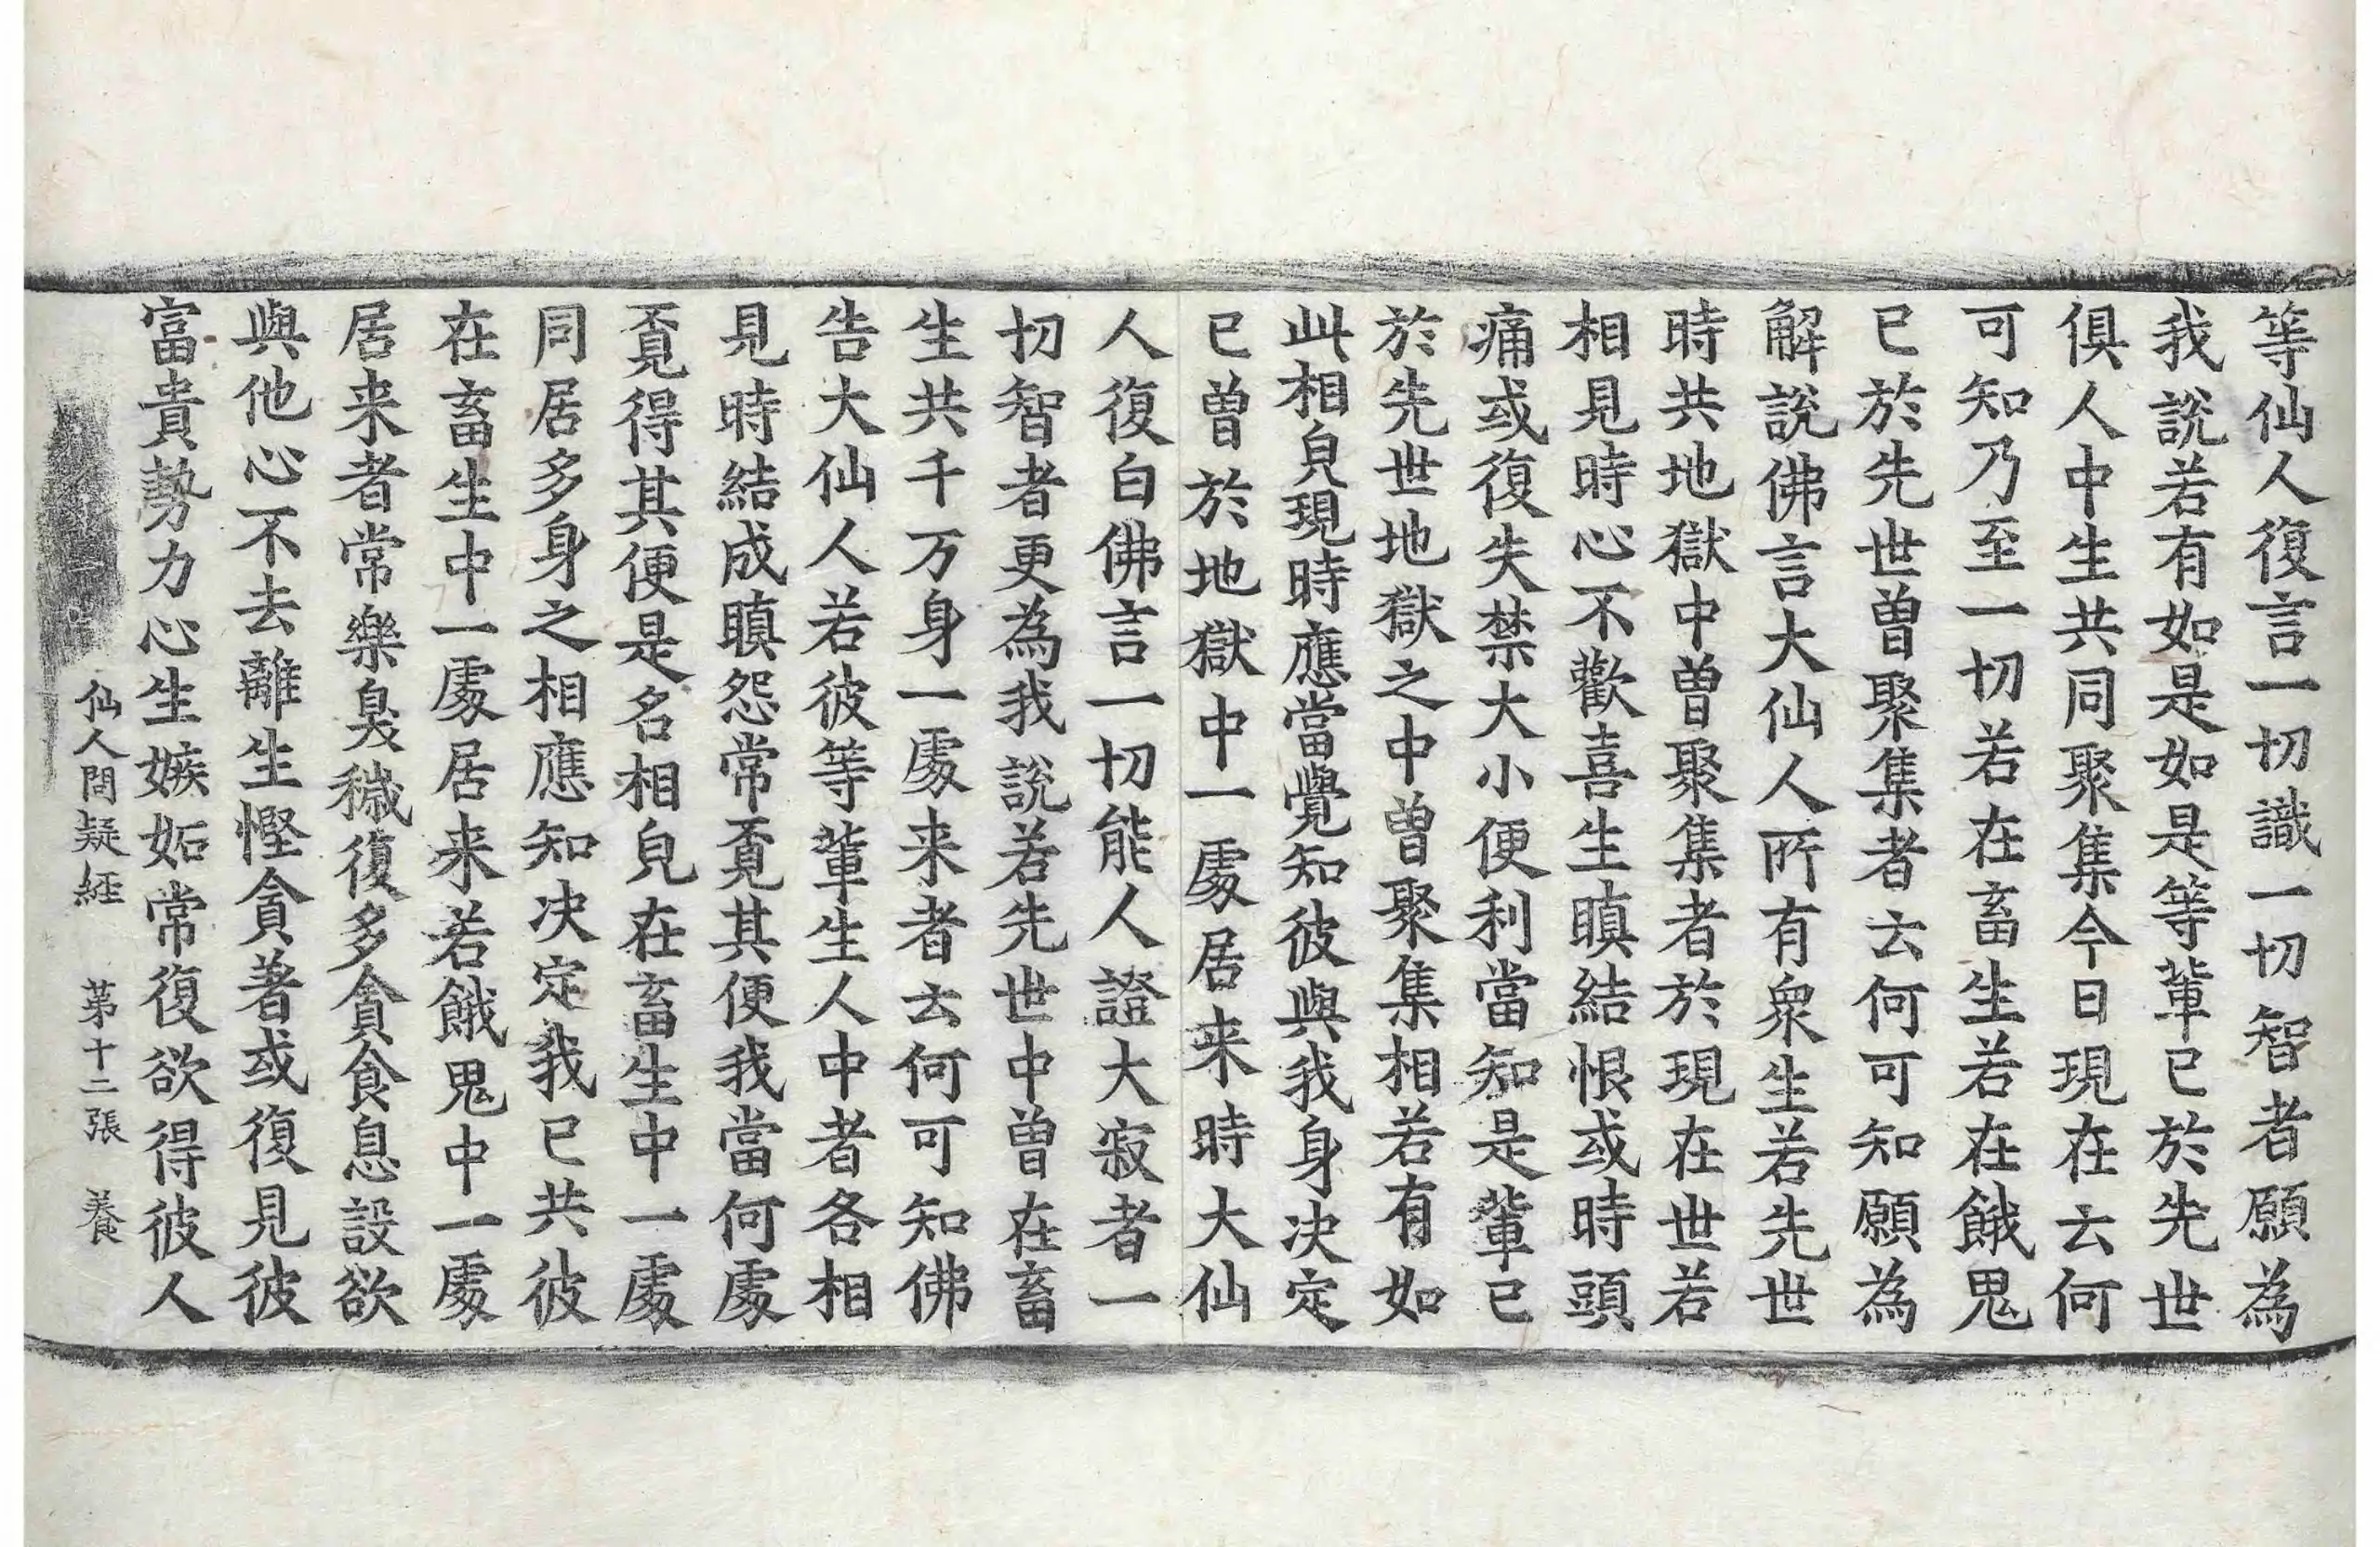 等仙人復言一切識一切智者願為
我說若有如是如是等輩已於先世
俱人中生共同聚集今日現在云何
可知乃至一切若在畜生若在餓鬼
已於先世曽聚集者云何可知願為
解說佛言大仙人所有衆生若先世
時共地獄中曽聚集者於現在世若
相見時心不歡喜生瞋結恨或時頭
痛或復失禁大小便利當知是輩已
於先世地獄之中曽聚集相若有如
此相皃現時應當覺知彼與我身决定
已曽於地獄中一處居来時大仙
人復白佛言一切能人證大寂者一
切智者更為我說若先世中曽在畜
生共千万身一處来者云何可知佛
告大仙人若彼等輩生人中者各相
見時結成瞋怨常覔其便我當何處
覔得其便是名相皃在畜生中一處
同居多身之相應知决定我已共彼
在畜生中一處居来若餓鬼中一處
居来者常樂臭穢復多貪食息設欲
與他心不去離生慳貪著或復見彼
富貴勢力心生嫉妬常復欲得彼人
仙人問疑経 第十二張 養